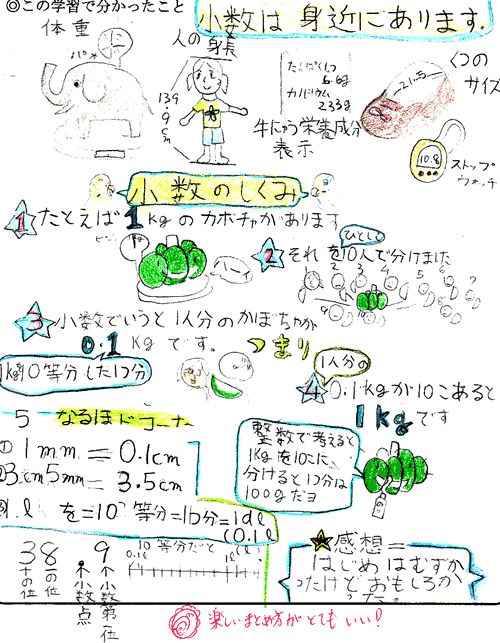 ◎この学習で分かったこと
小数は身近にあります.
体重
人の身長
139.9cm
たんぱくしつ
6.6g
カルシウム
233g
牛にゅう栄養成分
表示
くつの
サイズ
21.5
10.8
ストップ
ウォッチ
小数のしくみ
1 たとえば1kgのカボチャがあります
2 それを10人で分けました
ひとしく
1 2 3 4 5 6 7
3 小数でいうと1人分のかぼちゃが
0.1kgです。つまり
1kgを10等分した1つ分
1人分の
4 0.1kgが10こあると
1kgです
5 なるほどコーナー
① 1mm=0.1cm
② 3cm5mm=3.5cm
③ 1ℓを=10等分=1つ分=1dℓ
(0.1ℓ
整数で考えると
1kgを10こに、
分けると1つ分は
100gだヨ
10等分だと
0.1ℓ
1ℓ
38.9
十の位
一の位
小数点
小数第一位
★感想=
はじめはむずか
ったけどおもしろか
った。
楽しいまとめ方がとてもいい!